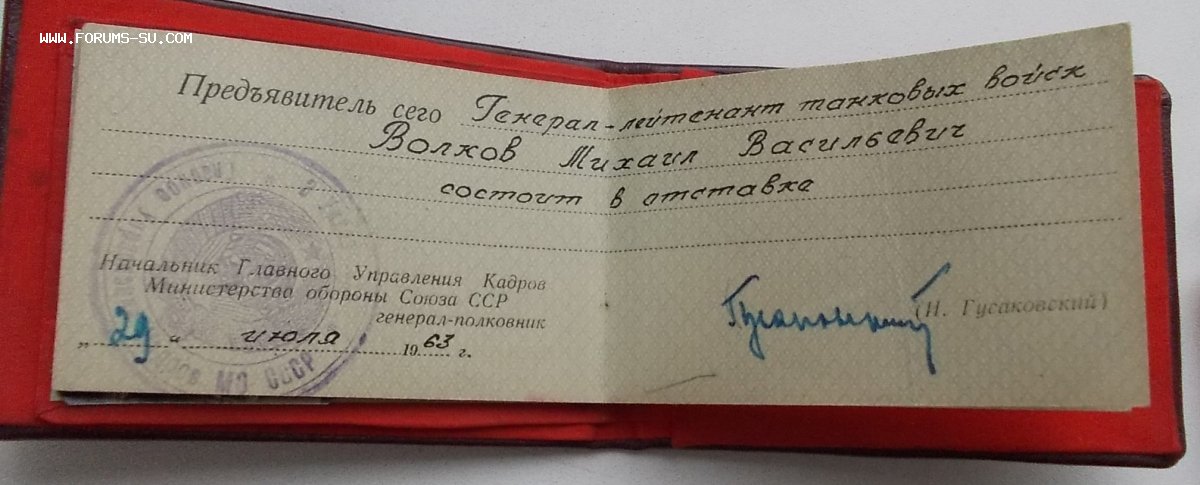 www.forums-su.com
Предъявитель сего Генерал-лейтенант танковых войск
Волков Михаил Васильевич
состоит в отставке
Начальник Главного Управления Кадров
Министерства обороны Союза ССР
генерал-полковник
(И. Гусаковский)
„ 29 “ июля 1963 г.
МО СССР